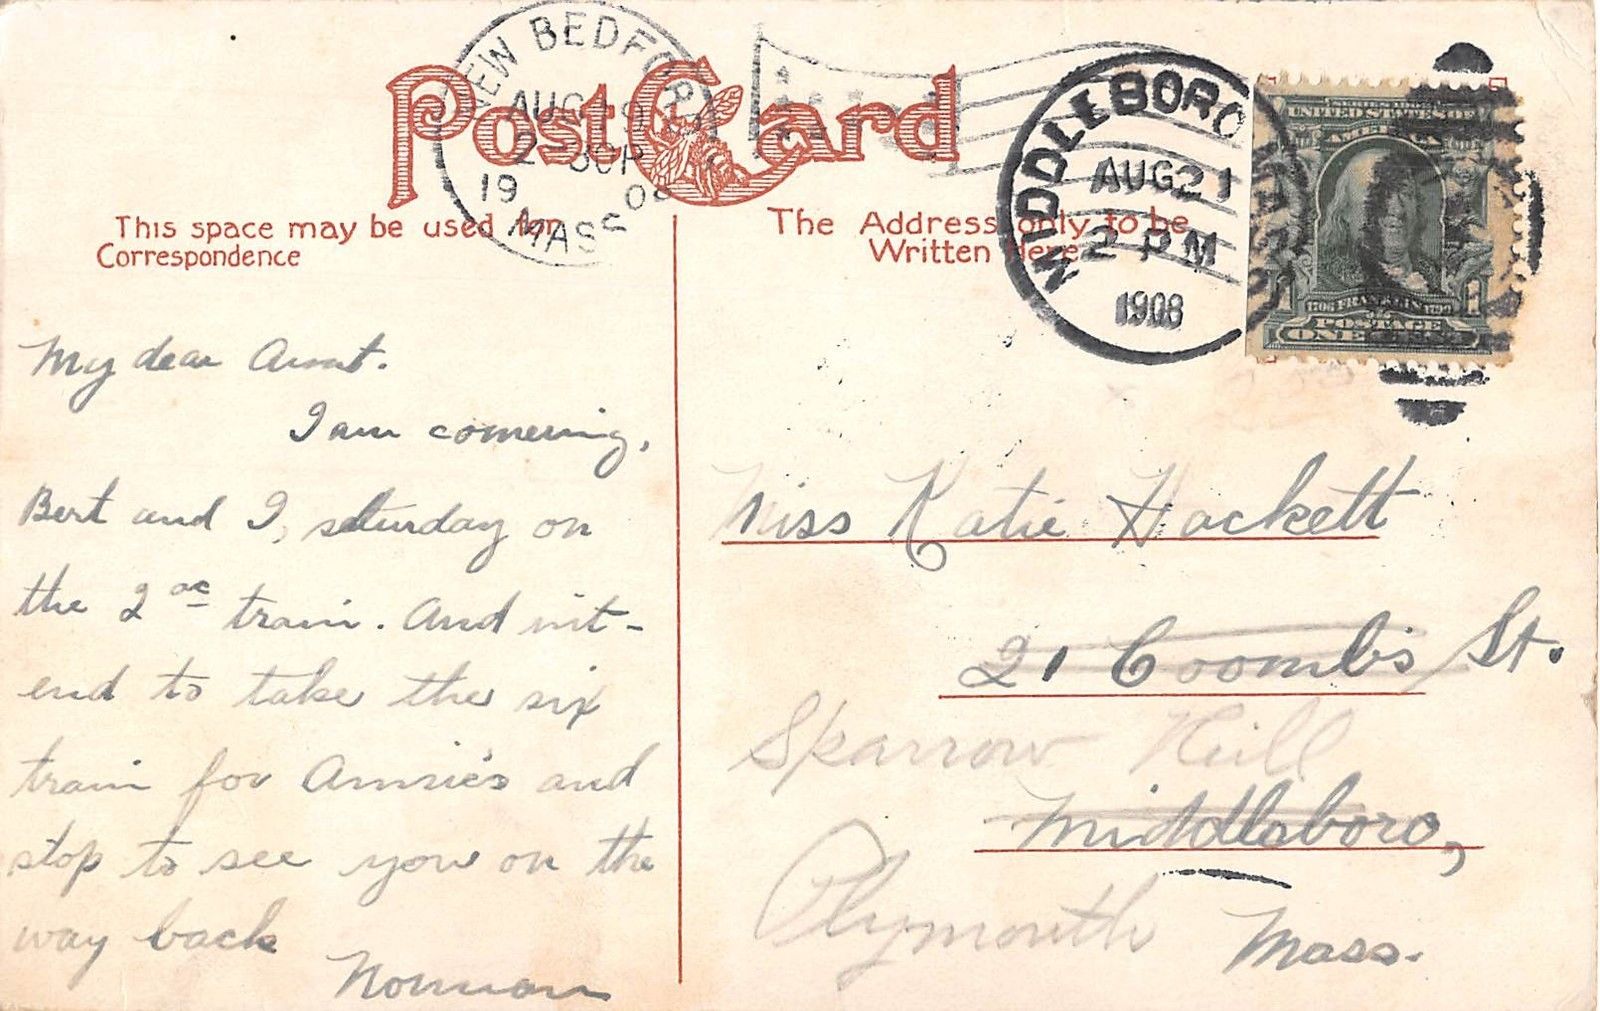 NEW BEDFORD
AUG 19
2-30P
1908
MASS
Post Card
MIDDLEBORO
AUG 21
2 PM
1908
MASS
SERIES 1902
UNITED STATES OF
AMERICA
1706 FRANKLIN 1790
POSTAGE
ONE CENT
This space may be used for
Correspondence
The Address only to be
Written Here
My dear Aunt.
I am comeing,
Bert and I, saturday on
the 2 oc train. And int-
end to take the six
train for Annie's and
stop to see you on the
way back
Norman
Miss Katie Hackett
21 Coombs St.
Sparrow Hill
Middleboro,
Plymouth
Mass.